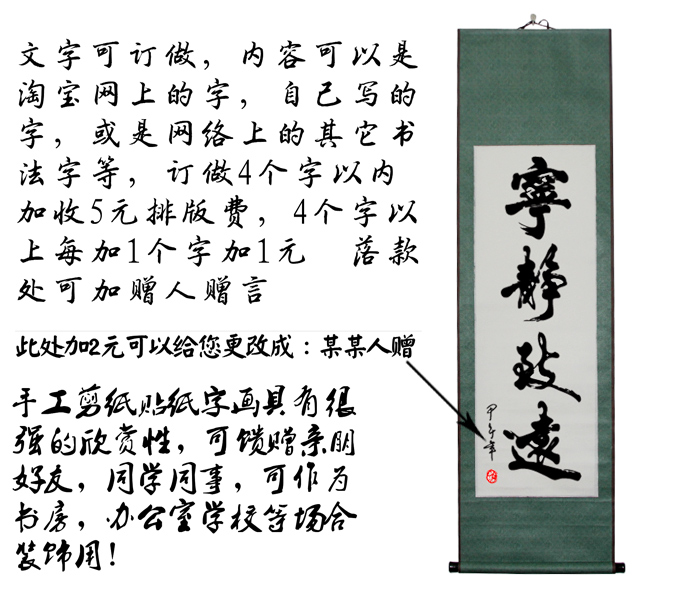 文字可订做，内容可以是
淘宝网上的字，自己写的
字，或是网络上的其它书
法字等，订做4个字以内
加收5元排版费，4个字以
上每加1个字加1元　落款
处可加赠人赠言
此处加2元可以给您更改成：某某人赠
手工剪纸贴纸字画具有很
强的欣赏性，可馈赠亲朋
好友，同学同事，可作为
书房，办公室学校等场合
装饰用！
寧靜致遠
甲午年